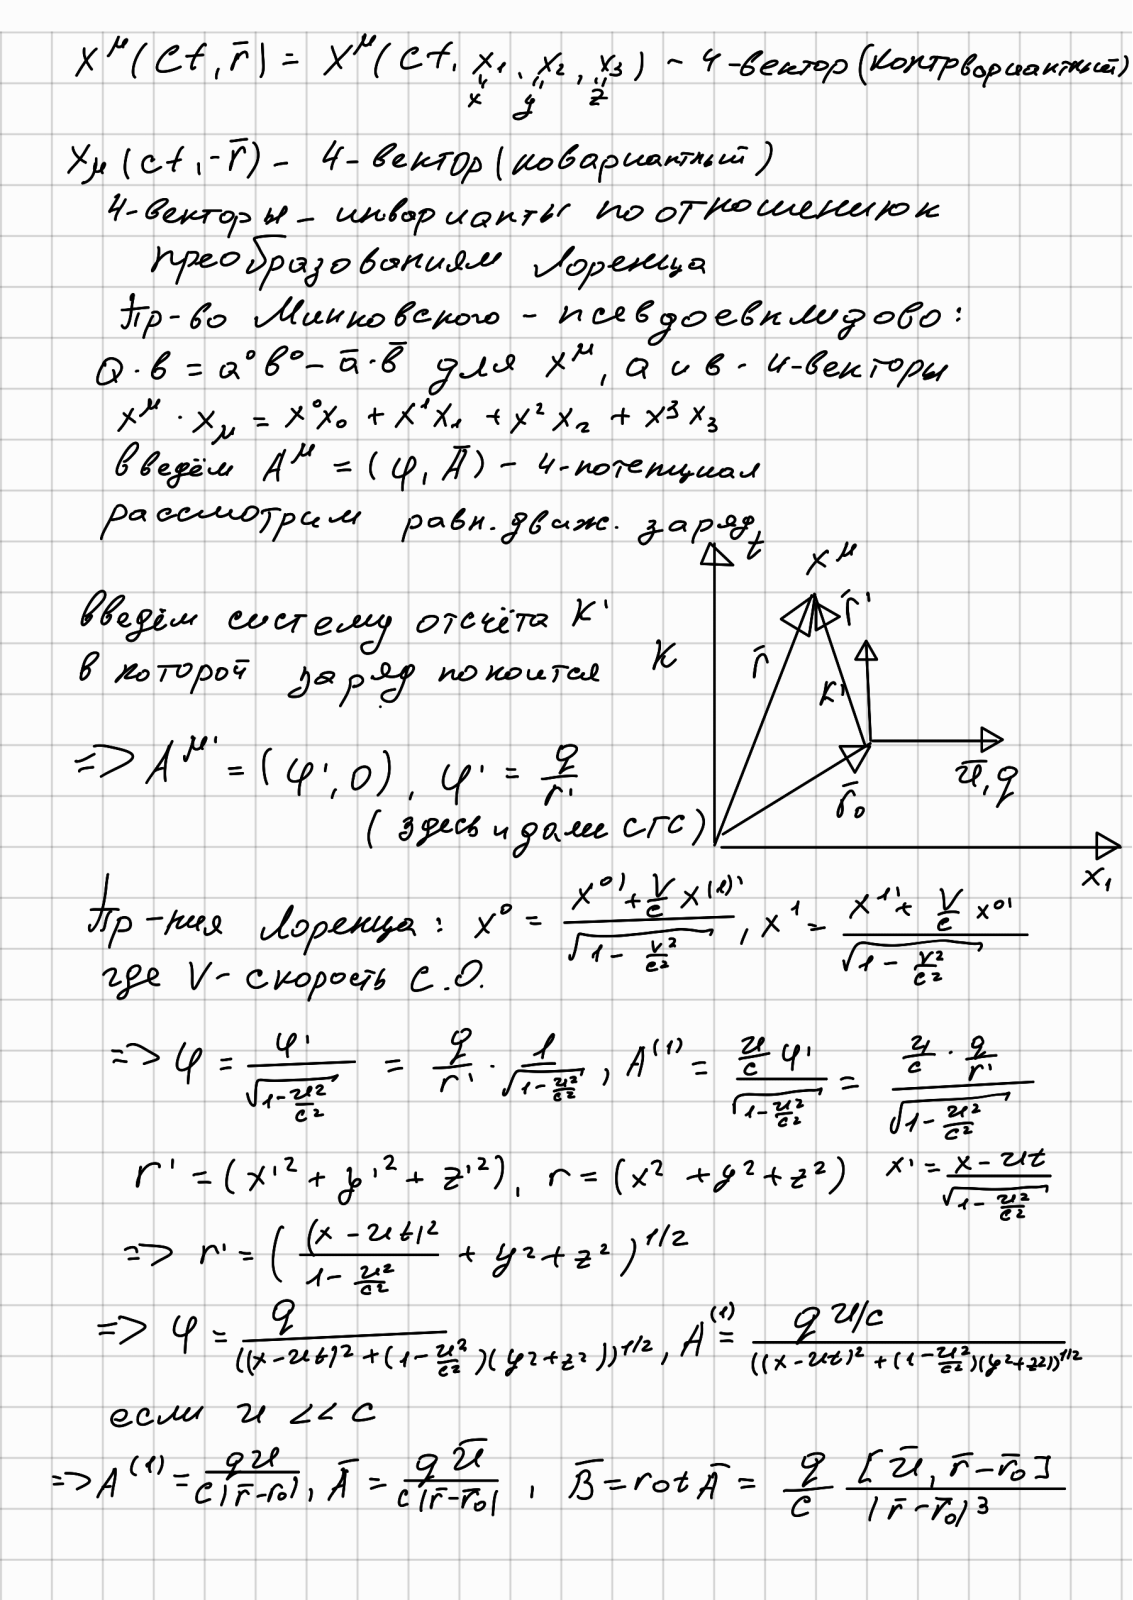 x^μ(ct, r̄) = x^μ(ct, x₁, x₂, x₃) - 4-вектор (контрвариантный)
x y z
x_μ(ct, -r̄) - 4-вектор (ковариантный)
4-векторы - инварианты по отношению к
преобразованиям Лоренца
Пр-во Минковского - псевдоевклидово:
a·b = a⁰b⁰ - ā·b̄ для x^μ, a и b - 4-векторы
x^μ · x_μ = x⁰x₀ + x¹x₁ + x²x₂ + x³x₃
введём A^μ = (φ, Ā) - 4-потенциал
рассмотрим равн. движ. заряд
t x^μ
введём систему отсчёта K'
K r̄ r̄'
в которой заряд покоится
K'
=> A^μ' = (φ', 0), φ' = q/r'
r̄₀ ū, q
(здесь и далее СГС)
x₁
Пр-ния Лоренца: x⁰ = (x⁰' + V/c x⁽¹⁾')/√(1 - V²/c²), x¹ = (x¹' + V/c x⁰')/√(1 - V²/c²)
где V - скорость С.О.
=> φ = φ'/√(1 - u²/c²) = q/r' · 1/√(1 - u²/c²), A⁽¹⁾ = (u/c φ')/√(1 - u²/c²) = (u/c · q/r')/√(1 - u²/c²)
r' = (x'² + y'² + z'²), r = (x² + y² + z²) x' = (x - ut)/√(1 - u²/c²)
=> r' = ((x - ut)²/(1 - u²/c²) + y² + z²)^1/2
=> φ = q/((x - ut)² + (1 - u²/c²)(y² + z²))^1/2, A⁽¹⁾ = (q u/c)/((x - ut)² + (1 - u²/c²)(y² + z²))^1/2
если u << c
=> A⁽¹⁾ = qu/(c|r̄ - r₀|), Ā = qū/(c|r̄ - r̄₀|), B̄ = rot Ā = q/c [ū, r̄ - r̄₀]/|r̄ - r̄₀|³